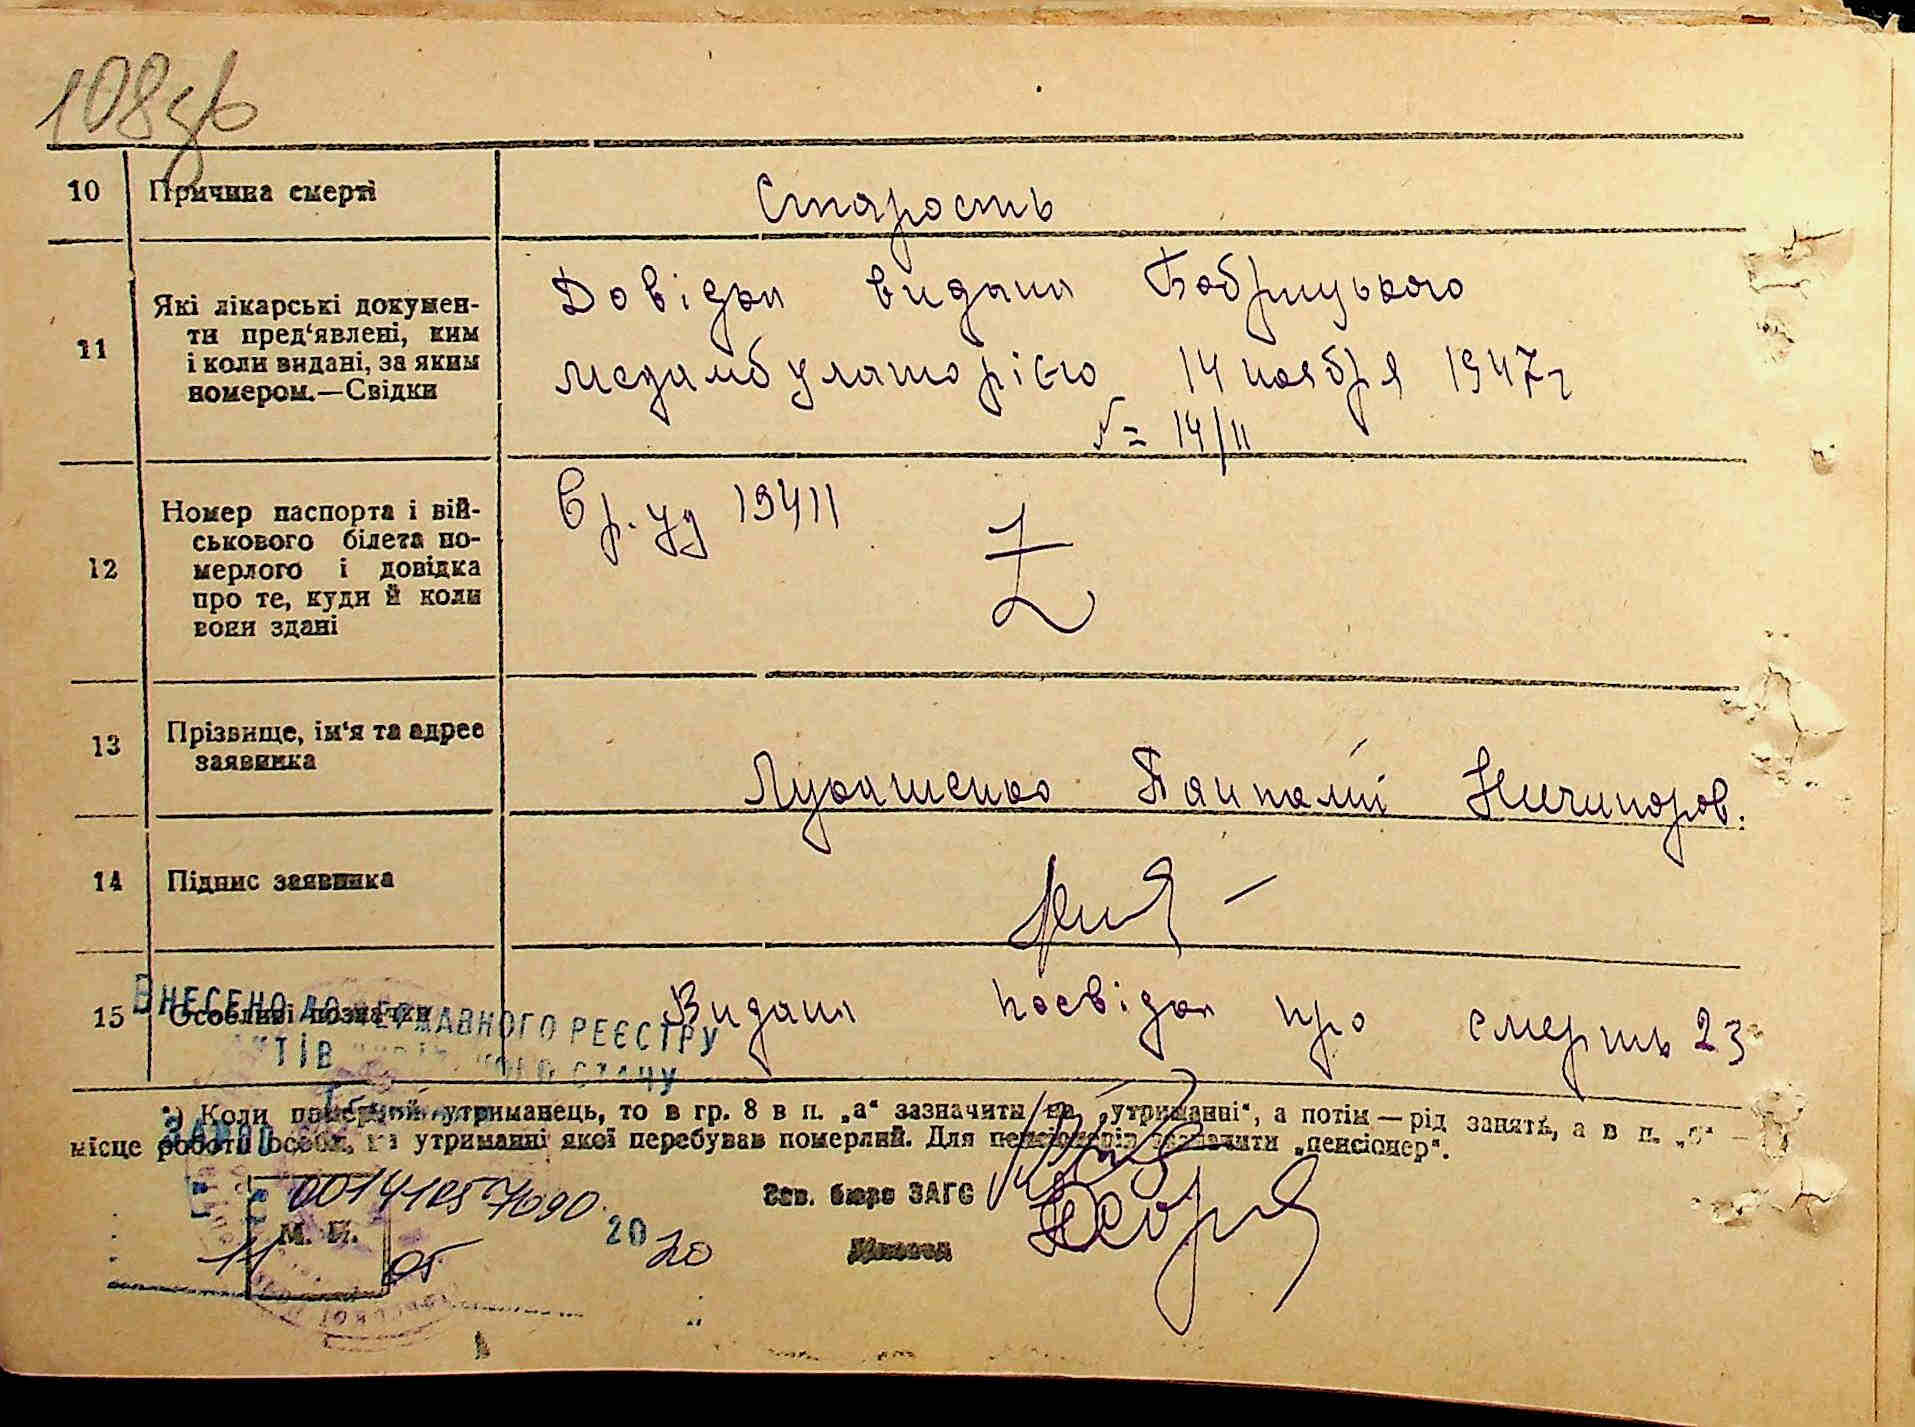 108зв
10 Причина смерті Старость
11 Які лікарські докумен-
ти пред'явлені, ким
і коли видані, за яким
номером.—Свідки
Довідка видана Бобрицького
медамбулаторією 14 ноября 1947 г
№ 14/11
12 Номер паспорта і вій-
ськового білета по-
мерлого і довідка
про те, куди й коли
вони здані
Вр. уд 19411
13 Прізвище, ім'я та адрес
заявника
Лукашенко Панталій Ничипоров.
14 Підпис заявника
15 Особливі позначки Видана посвідка про смерть 23
ВНЕСЕНО ДО ДЕРЖАВНОГО РЕЄСТРУ
АКТІВ СТАНУ
*) Коли померлий утриманець, то в гр. 8 в п. „а“ зазначити на „утриманні“, а потім — рід занять, а в п. „б“ —
місце роботи особи, на утриманні якої перебував померлий. Для пенсіонерів зазначити „пенсіонер“.
Зав. бюро ЗАГС
00141057090.
М. П.
11 05 2020
Діловод